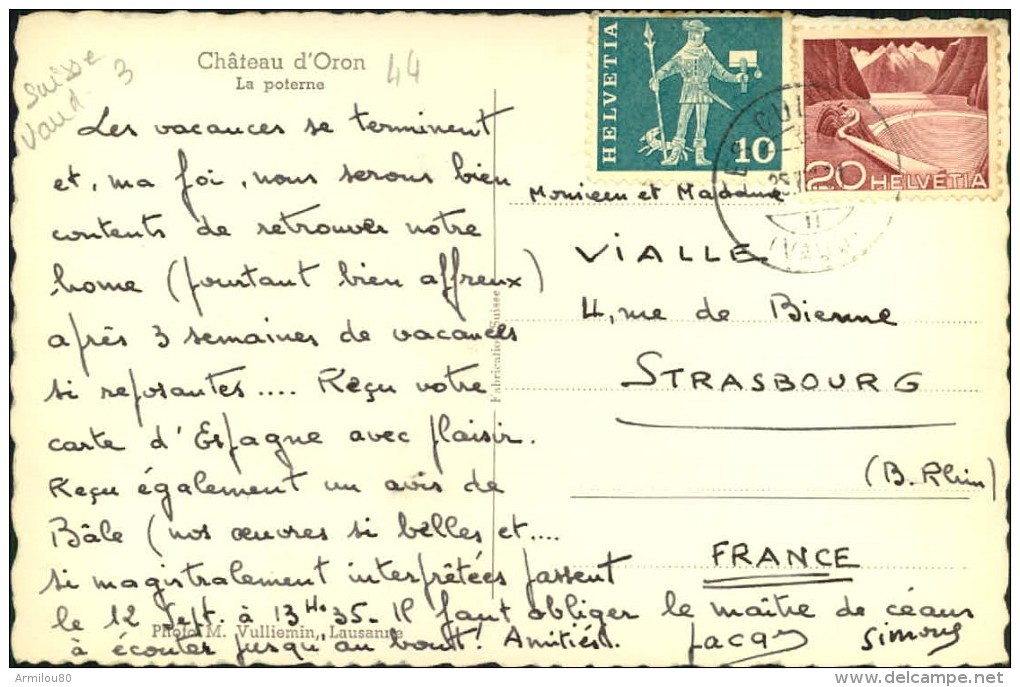 Château d'Oron
La poterne
44
Suisse
Vaud. 3
HELVETIA
10
20 HELVETIA
25
(VAUD)
Les vacances se terminent
et, ma foi, nous serons bien
contents de retrouver notre
home (pourtant bien affreux)
après 3 semaines de vacances
si reposantes.... Reçu votre
carte d'Espagne avec plaisir.
Reçu également un avis de
Bâle (nos œuvres si belles et....
si magistralement interprêtées passent
le 12 Sept. à 13 Ho 35. Il faut obliger le maître de céans
à écouter jusqu'au bout! Amitiés.
Jacqs Simone
Monsieur et Madame
VIALLE
4, rue de Bienne
STRASBOURG
(B. Rhin)
FRANCE
Fabrication Suisse
Photo M. Vulliemin, Lausanne
Armilou80
delcampe.net